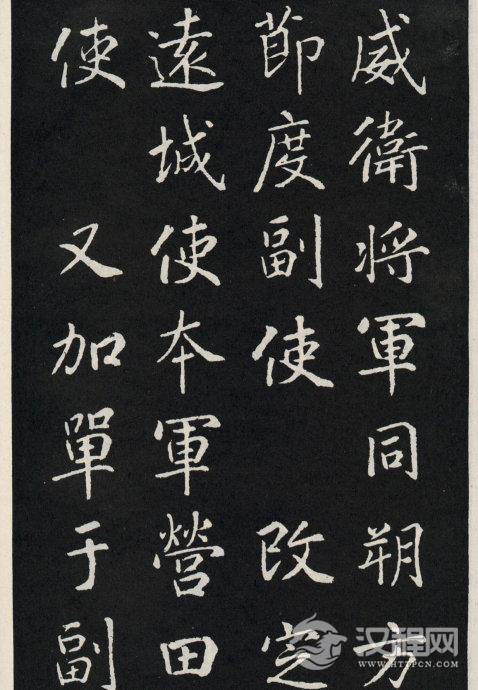 威衛将軍同朔方
節度副使 改定
遠城使本軍營田
使 又加單于副
汉程网
WWW.HTTPCN.COM